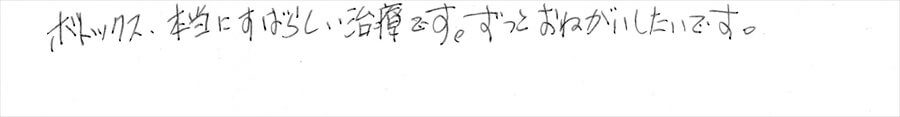 ボトックス、本当にすばらしい治療です。ずっとおねがいしたいです。